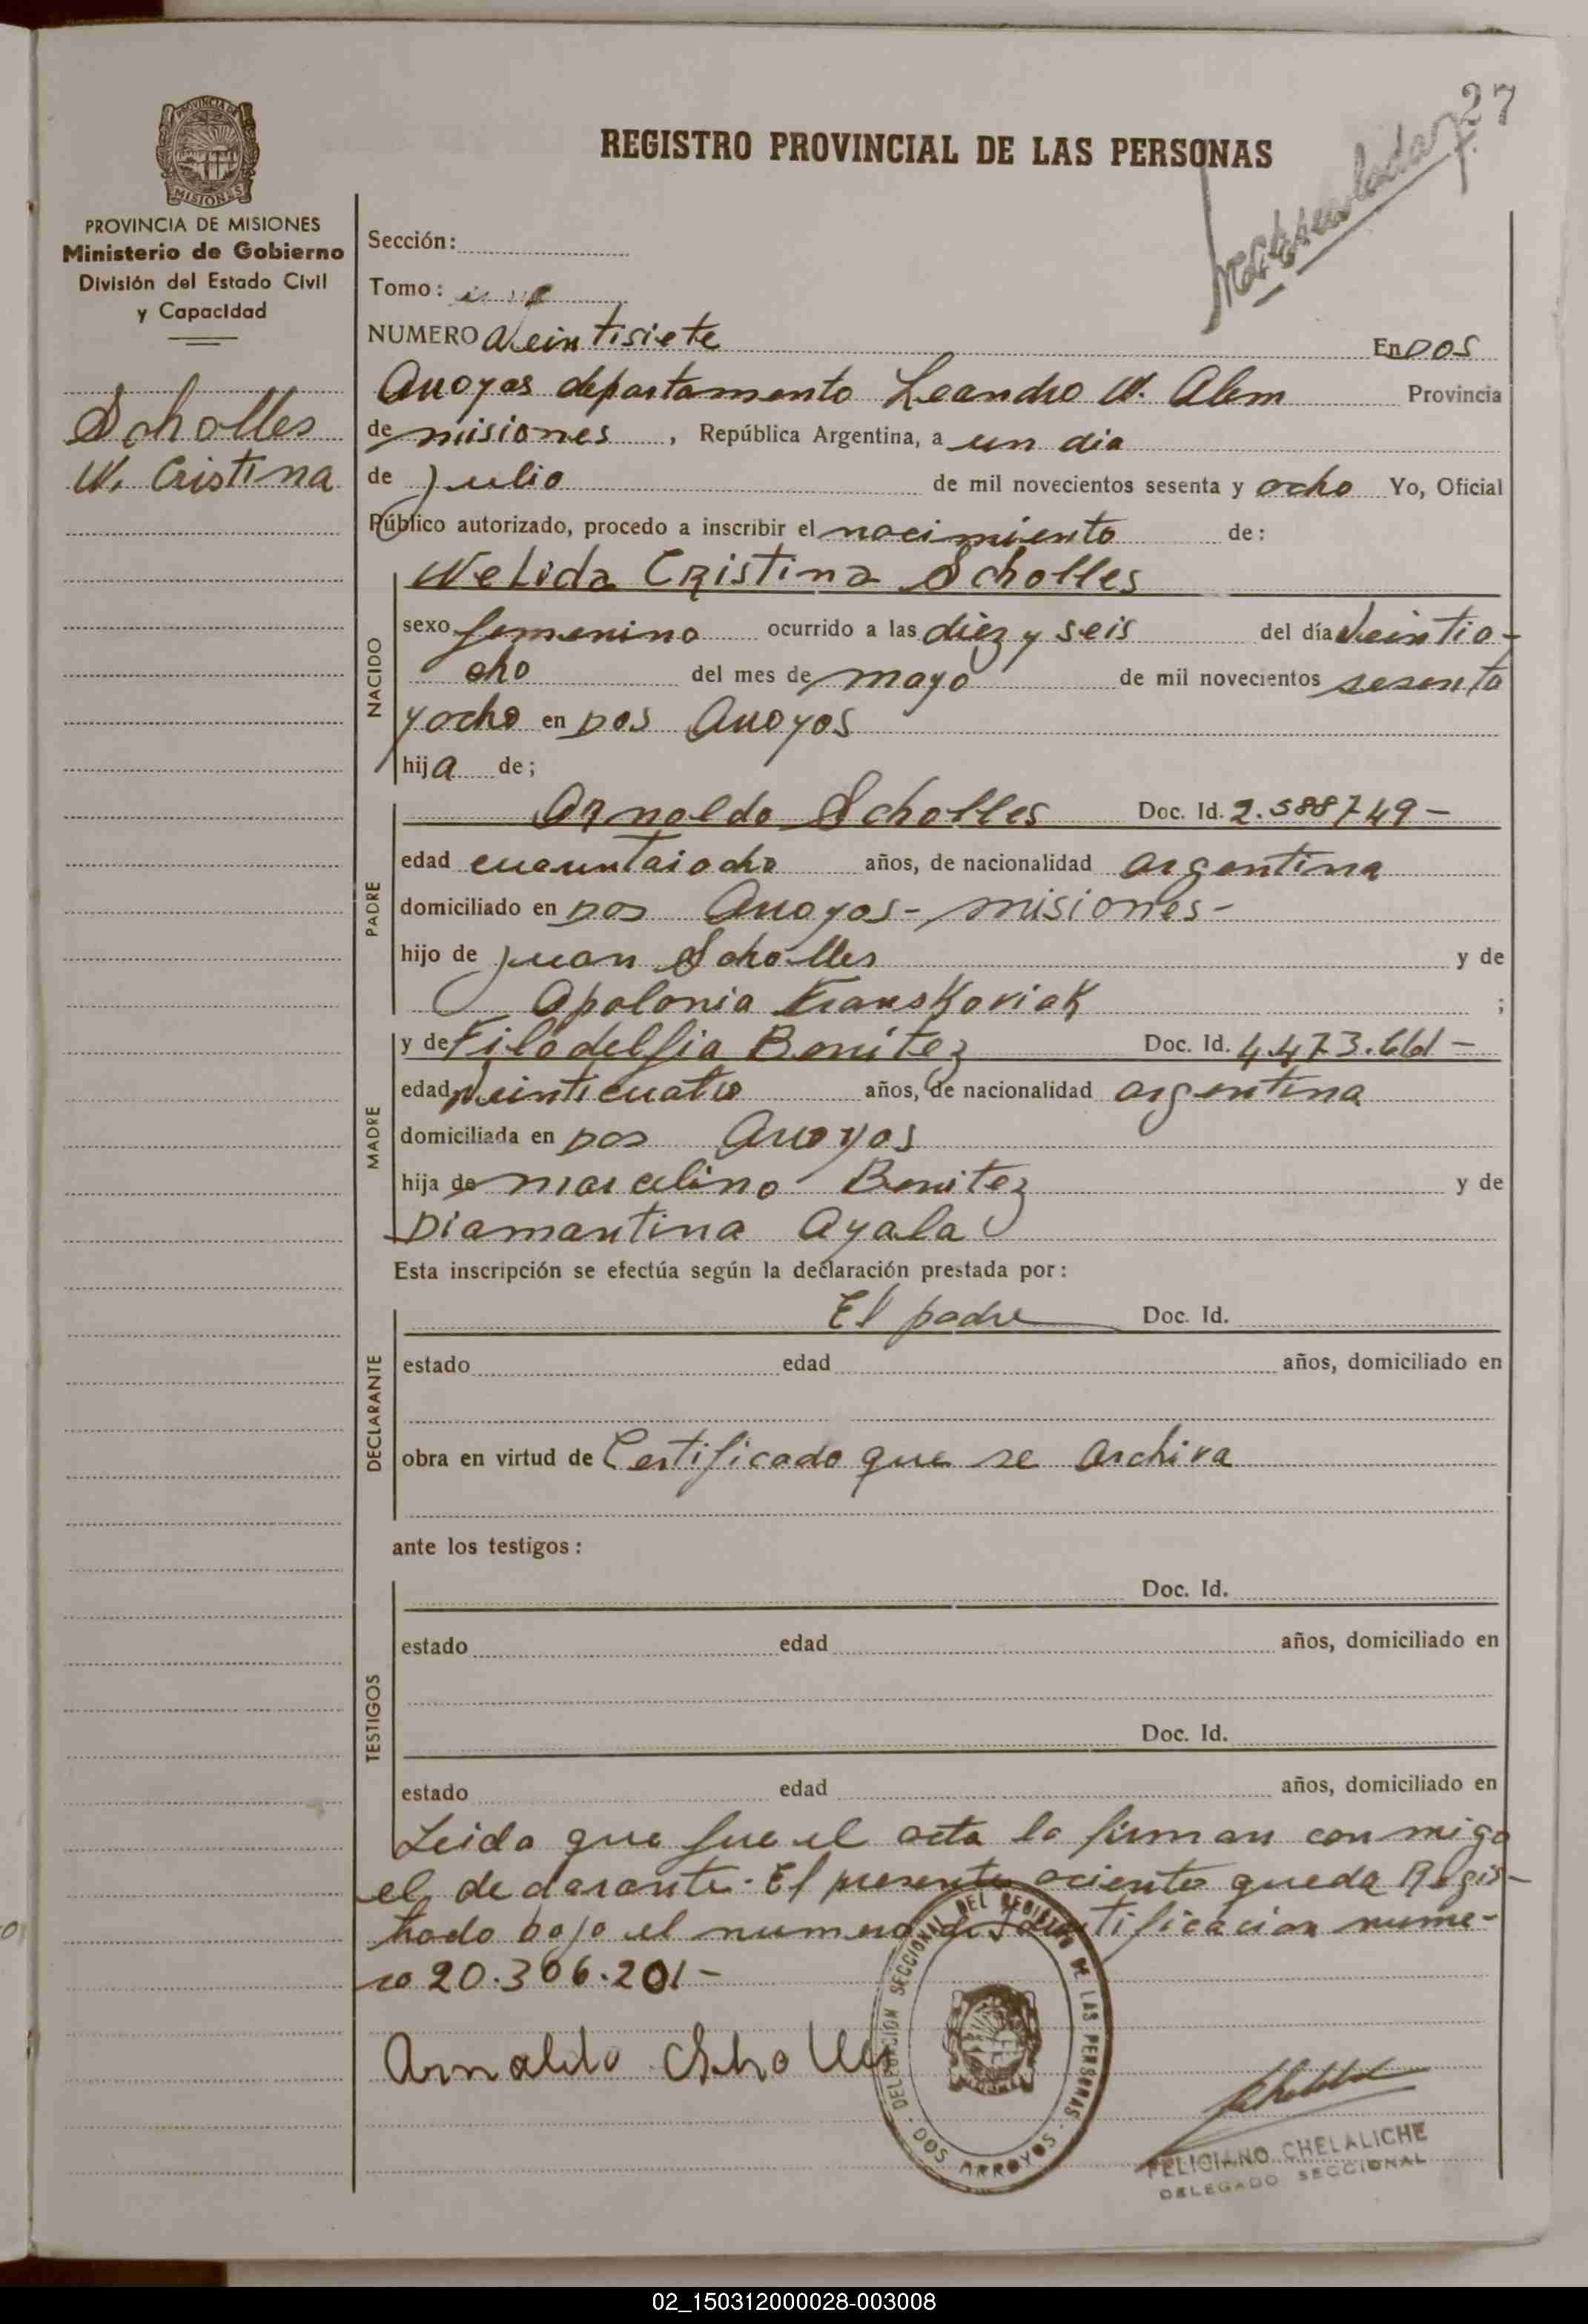 27
REGISTRO PROVINCIAL DE LAS PERSONAS
PROVINCIA DE MISIONES
PROVINCIA DE MISIONES
Ministerio de Gobierno
División del Estado Civil
y Capacidad
Scholles
N. Cristina
Sección:
Tomo:
NUMERO Veintisiete En DOS
Arroyos departamento Leandro N. Alem Provincia
de misiones, República Argentina, a un dia
de Julio de mil novecientos sesenta y ocho Yo, Oficial
Público autorizado, procedo a inscribir el nacimiento de:
NACIDO
Nelida Cristina Scholles
sexo femenino ocurrido a las diez y seis del día Veintio-
cho del mes de mayo de mil novecientos sesenta
y ocho en Dos Arroyos
hija de;
PADRE
Arnoldo Scholles Doc. Id. 2.588749-
edad años, de nacionalidad argentina
domiciliado en Dos Arroyos- misiones-
hijo de Juan Scholles y de
Apolonia ;
MADRE
y de Filadelfia Benitez Doc. Id. 4.473.661-
edad Veinticuatro años, de nacionalidad argentina
domiciliada en Dos Arroyos
hija de marcelino Benitez y de
Diamantina Ayala
Esta inscripción se efectúa según la declaración prestada por:
DECLARANTE
El padre Doc. Id.
estado edad años, domiciliado en
obra en virtud de Certificado que se archiva
ante los testigos:
TESTIGOS
Doc. Id.
estado edad años, domiciliado en
Doc. Id.
estado edad años, domiciliado en
Leida que fue el acta la firman con migo
el declarante. El presente aciento queda Regis-
trado bajo el numero de Identificacion nume-
ro 20.306.201-
Arnaldo Scholles
DELEGACION SECCIONAL DEL REGISTRO DE LAS PERSONAS · DOS ARROYOS ·
FELICIANO CHELALICHE
DELEGADO SECCIONAL
02_150312000028-003008